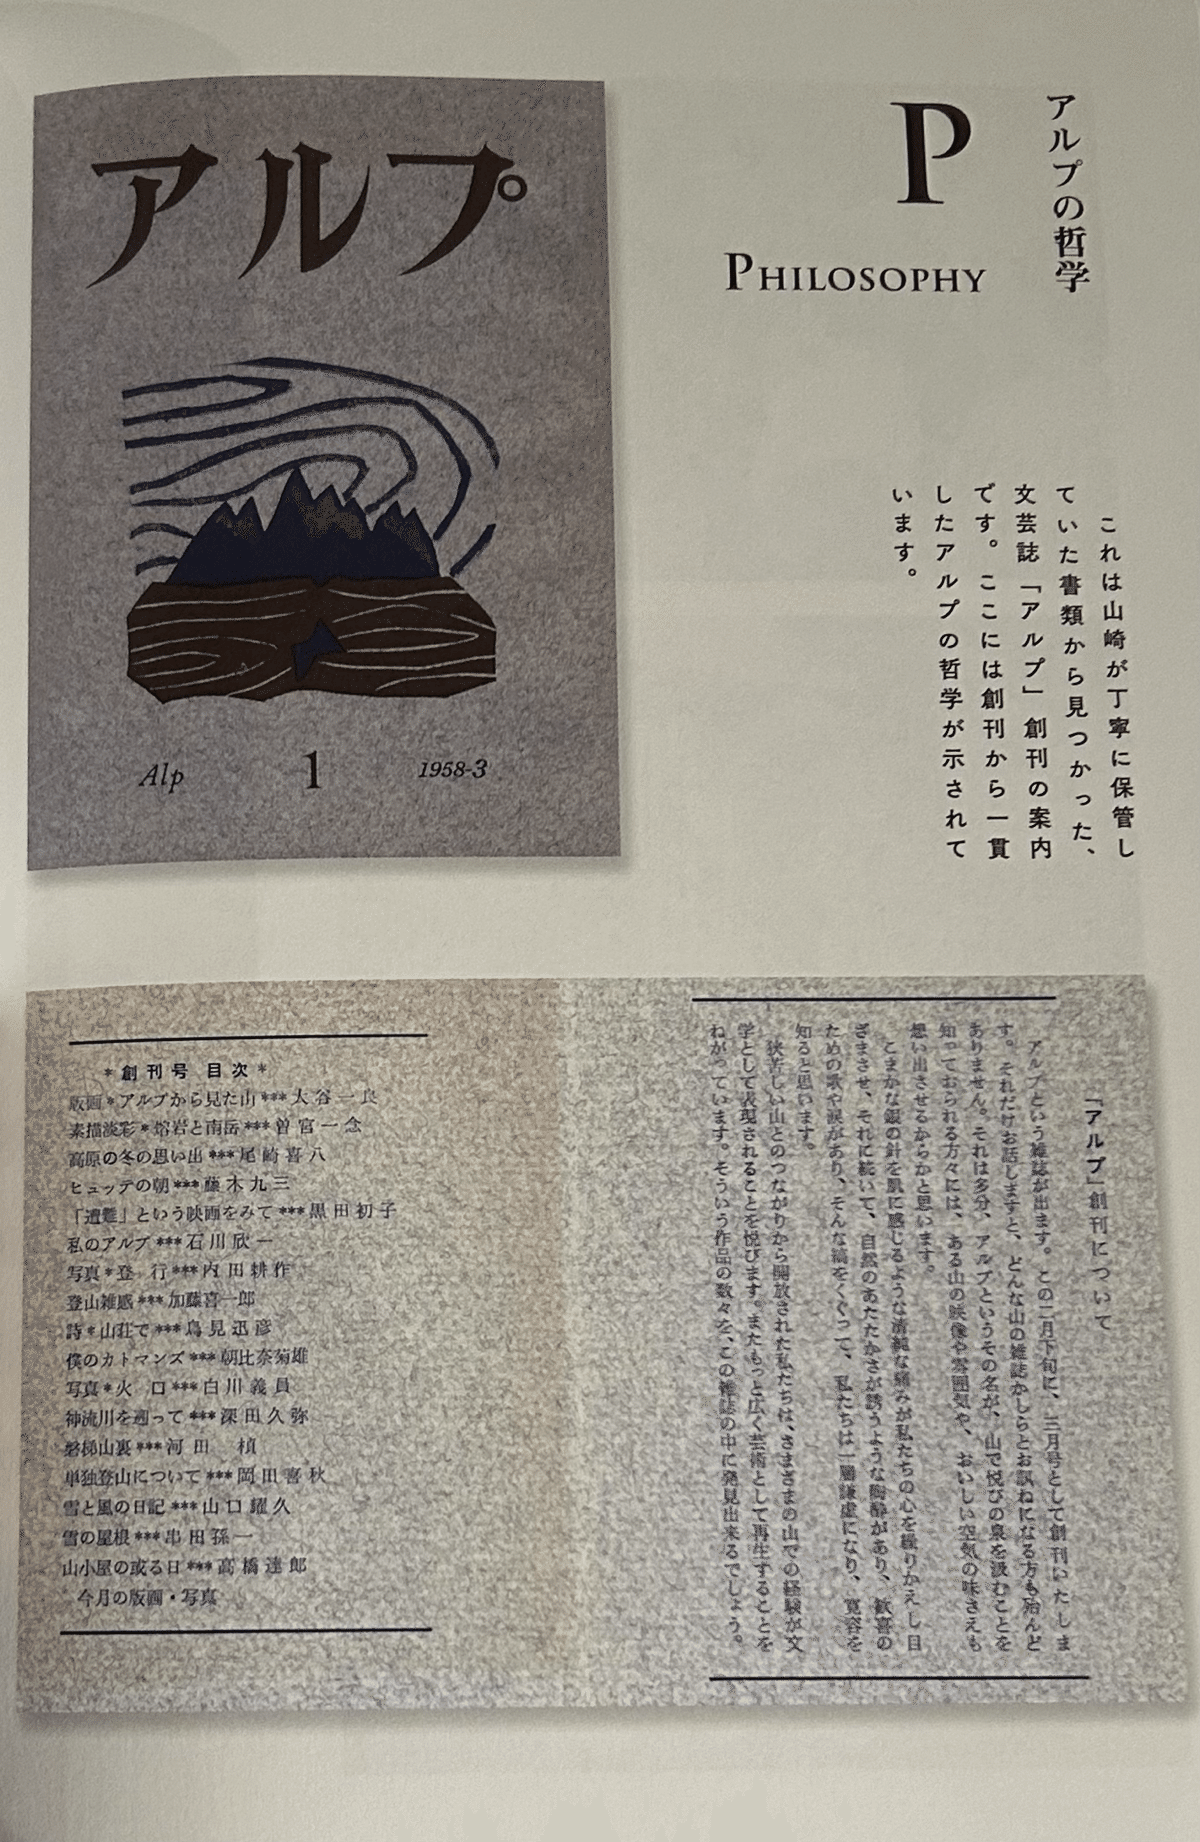 アルプの哲学
P
PHILOSOPHY
これは山崎が丁寧に保管し
ていた書類から見つかった、
文芸誌「アルプ」創刊の案内
です。ここには創刊から一貫
したアルプの哲学が示されて
います。
アルプ
Alp 1 1958-3
「アルプ」創刊について
アルプという雑誌が出ます。この二月下旬に、三月号として創刊いたしま
す。それだけお話しますと、どんな山の雑誌かしらとお訊ねになる方も殆んど
ありません。それは多分、アルプというその名が、山で悦びの泉を汲むことを
知っておられる方々には、ある山の映像や雰囲気や、おいしい空気の味さえも
想い出させるからかと思います。
こまかな銀の針を肌に感じるような清純な痛みが私たちの心を繰りかえし目
ざまさせ、それに続いて、自然のあたたかさが誘うような陶酔があり、歓喜の
ための歌や涙があり、そんな縞をくぐって、私たちは一層謙虚になり、寛容を
知ると思います。
狭苦しい山とのつながりから開放された私たちは、さまざまの山での経験が文
学として表現されることを悦びます。またもっと広く芸術として再生することを
ねがっています。そういう作品の数々を、この雑誌の中に発見出来るでしょう。
*創刊号 目次*
版画*アルプから見た山***大谷一良
素描淡彩*熔岩と南岳***曽宮一念
高原の冬の思い出***尾崎喜八
ヒュッテの朝***藤木九三
「遭難」という映画をみて***黒田初子
私のアルプ***石川欣一
写真*登 行***内田耕作
登山雑感***加藤喜一郎
詩*山荘で***鳥見迅彦
僕のカトマンズ***朝比奈菊雄
写真*火 口***白川義員
神流川を遡って***深田久弥
磐梯山裏***河田 楨
単独登山について***岡田喜秋
雪と風の日記***山口耀久
雪の屋根***串田孫一
山小屋の或る日***高橋達郎
今月の版画・写真